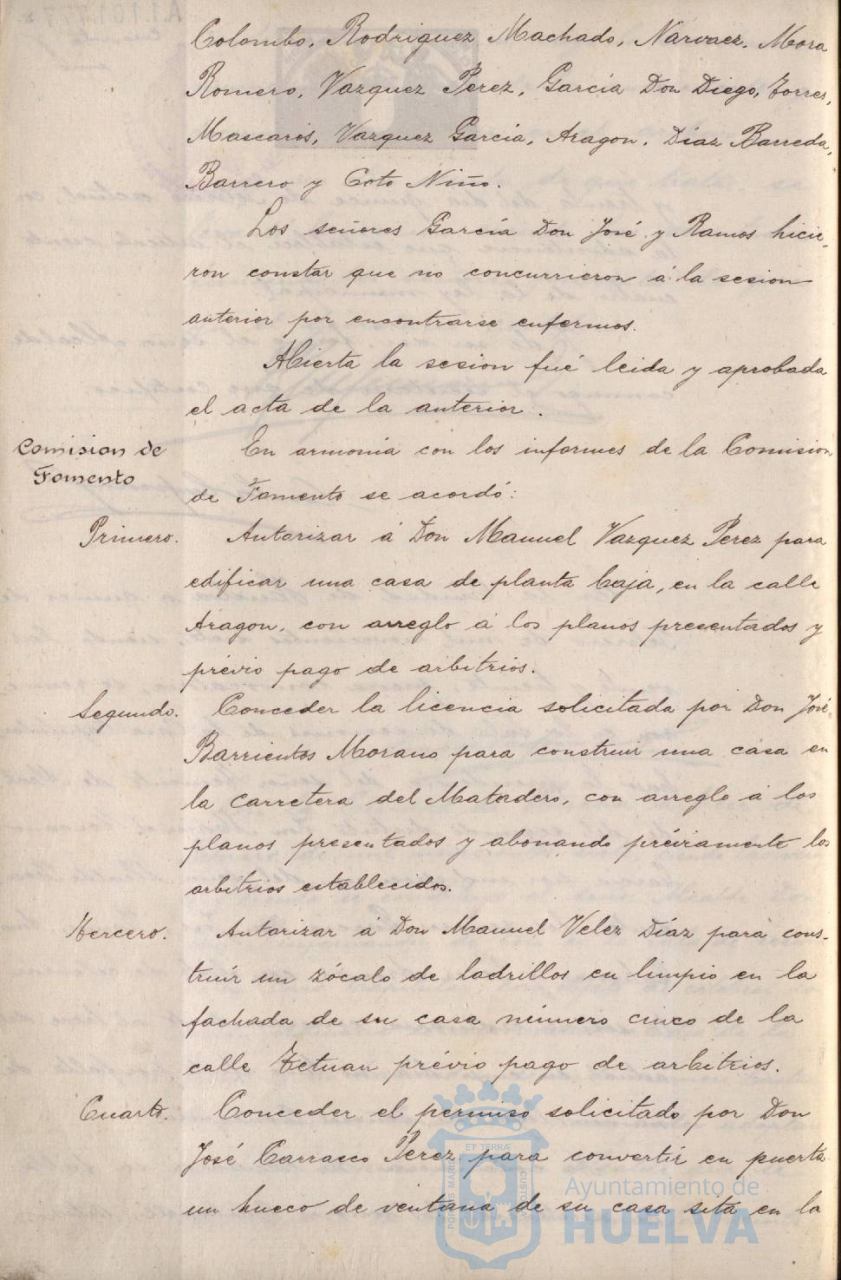 Colombo, Rodriguez Machado, Narvaez, Mora
Romero, Vazquez Perez, García Don Diego, Torres,
Mascarós, Vazquez García, Aragon, Díaz Barreda,
Barrero y Coto Niño.
Los señores García Don José y Ramos hicie-
ron constar que no concurrieron á la sesion
anterior por encontrarse enfermos.
Abierta la sesion fué leida y aprobada
el acta de la anterior.
Comision de
Fomento
En armonía con los informes de la Comision
de Fomento se acordó:
Primero. Autorizar á Don Manuel Vazquez Perez para
edificar una casa de planta baja, en la calle
Aragon, con arreglo á los planos presentados y
prévio pago de arbitrios.
Segundo. Conceder la licencia solicitada por Don José
Barrientos Morano para construir una casa en
la carretera del Matadero, con arreglo á los
planos presentados y abonando préviamente los
arbitrios establecidos.
Tercero. Autorizar á Don Manuel Velez Díaz para cons-
truir un zócalo de ladrillos en limpio en la
fachada de su casa número cinco de la
calle Tetuan prévio pago de arbitrios.
Cuarto. Conceder el permiso solicitado por Don
José Carrasco Perez para convertir en puerta
un hueco de ventana de su casa sita en la
ET TERRÆ
PORTUS MARIS
CUSTODIA
Ayuntamiento de
HUELVA